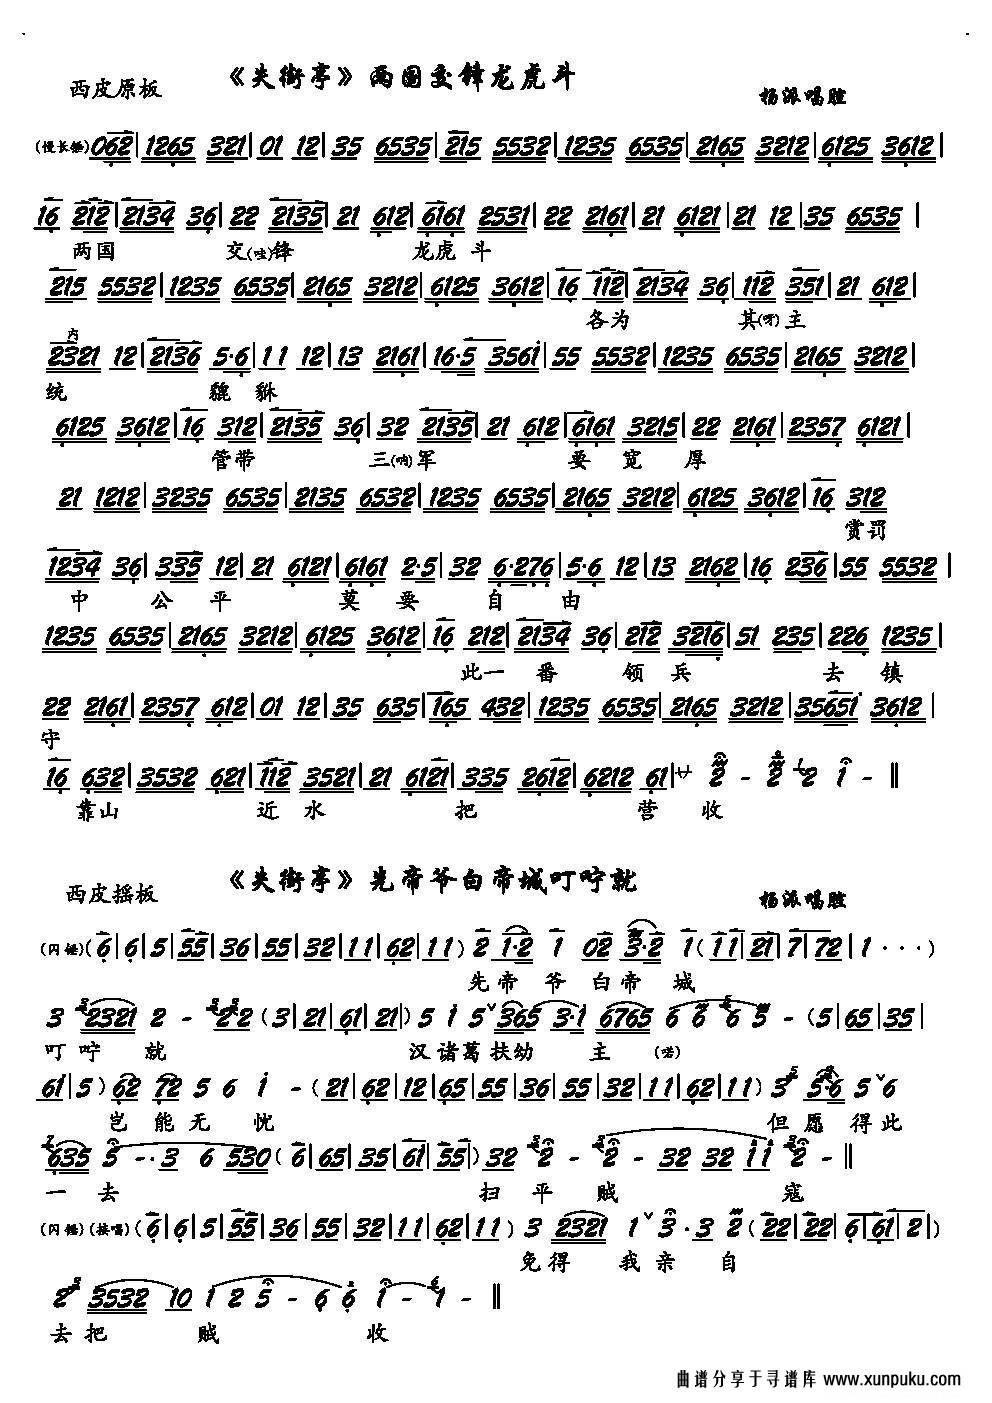 《失街亭》两国交锋龙虎斗
西皮原板
杨派唱腔
(慢长锤) 062|1265 321|01 12|35 6535|215 5532|1235 6535|2165 3212|6125 3612|
16 212|2134 36|22 2135|21 612|6161 2531|22 2161|21 6121|21 12|35 6535|
两国 交(哇)锋 龙虎 斗
215 5532|1235 6535|2165 3212|6125 3612|16 112|2134 36|112 351|21 612|
各为 其(呀)主
内
2321 12|2136 5·6|11 12|13 2161|16·5 3561|55 5532|1235 6535|2165 3212|
统 貔貅
6125 3612|16 312|2135 36|32 2135|21 612|6161 3215|22 2161|2357 6121|
管带 三(呐)军 要宽厚
21 1212|3235 6535|2135 6532|1235 6535|2165 3212|6125 3612|16 312
赏罚
1234 36|335 12|21 6121|6161 2·5|32 6·276|5·6 12|13 2162|16 236|55 5532|
中 公平 莫要 自由
1235 6535|2165 3212|6125 3612|16 212|2134 36|212 3216|51 235|226 1235|
此一番 领兵 去镇
22 2161|2357 612|01 12|35 635|165 432|1235 6535|2165 3212|35651 3612|
守
16 632|3532 621|112 3521|21 6121|335 2612|6212 61|サ 2 - 2 2 1 -‖
靠山 近水 把 营收
《失街亭》先帝爷白帝城叮咛就
西皮摇板
杨派唱腔
(闪锤)(6|6|5|55|36|55|32|11|62|11) 2 1·2 1 02 3·2 1(11|21|7|72|1···)
先帝爷白帝城
3 2321 2 - 22(3|21|61|21) 5 1 5ˇ365 3·1 6765 6 6 6 5 -(5|65|35|
叮咛 就 汉诸葛扶幼 主 (喏)
61|5) 62 72 5 6 1 -(21|62|65|55|36|55|32|11|62|11) 3 5·6 5ˇ6
岂能无忧 但愿得此
635 5 -·3 6 530(6|65|35|61|55) 32 2 - 2 - 32 32 11 2 -‖
一去 扫平贼 寇
(闪锤)(接唱)(6|6|5|55|36|55|32|11|62|11) 3 2321 1ˇ3·3 2(22|22|6|61|2)
免得 我亲自
2 3532 10 1 2 5 - 6 6 1 - 1 -‖
去把 贼 收
曲谱分享于寻谱库 www.xunpuku.com